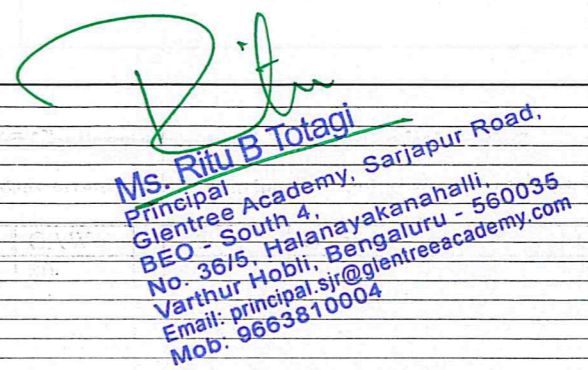 Ritu
Ms. Ritu B Totagi
Principal
Glentree Academy, Sarjapur Road,
BEO - South 4,
No. 36/5, Halanayakanahalli,
Varthur Hobli, Bengaluru - 560035
Email: principal.sjr@glentreeacademy.com
Mob: 9663810004